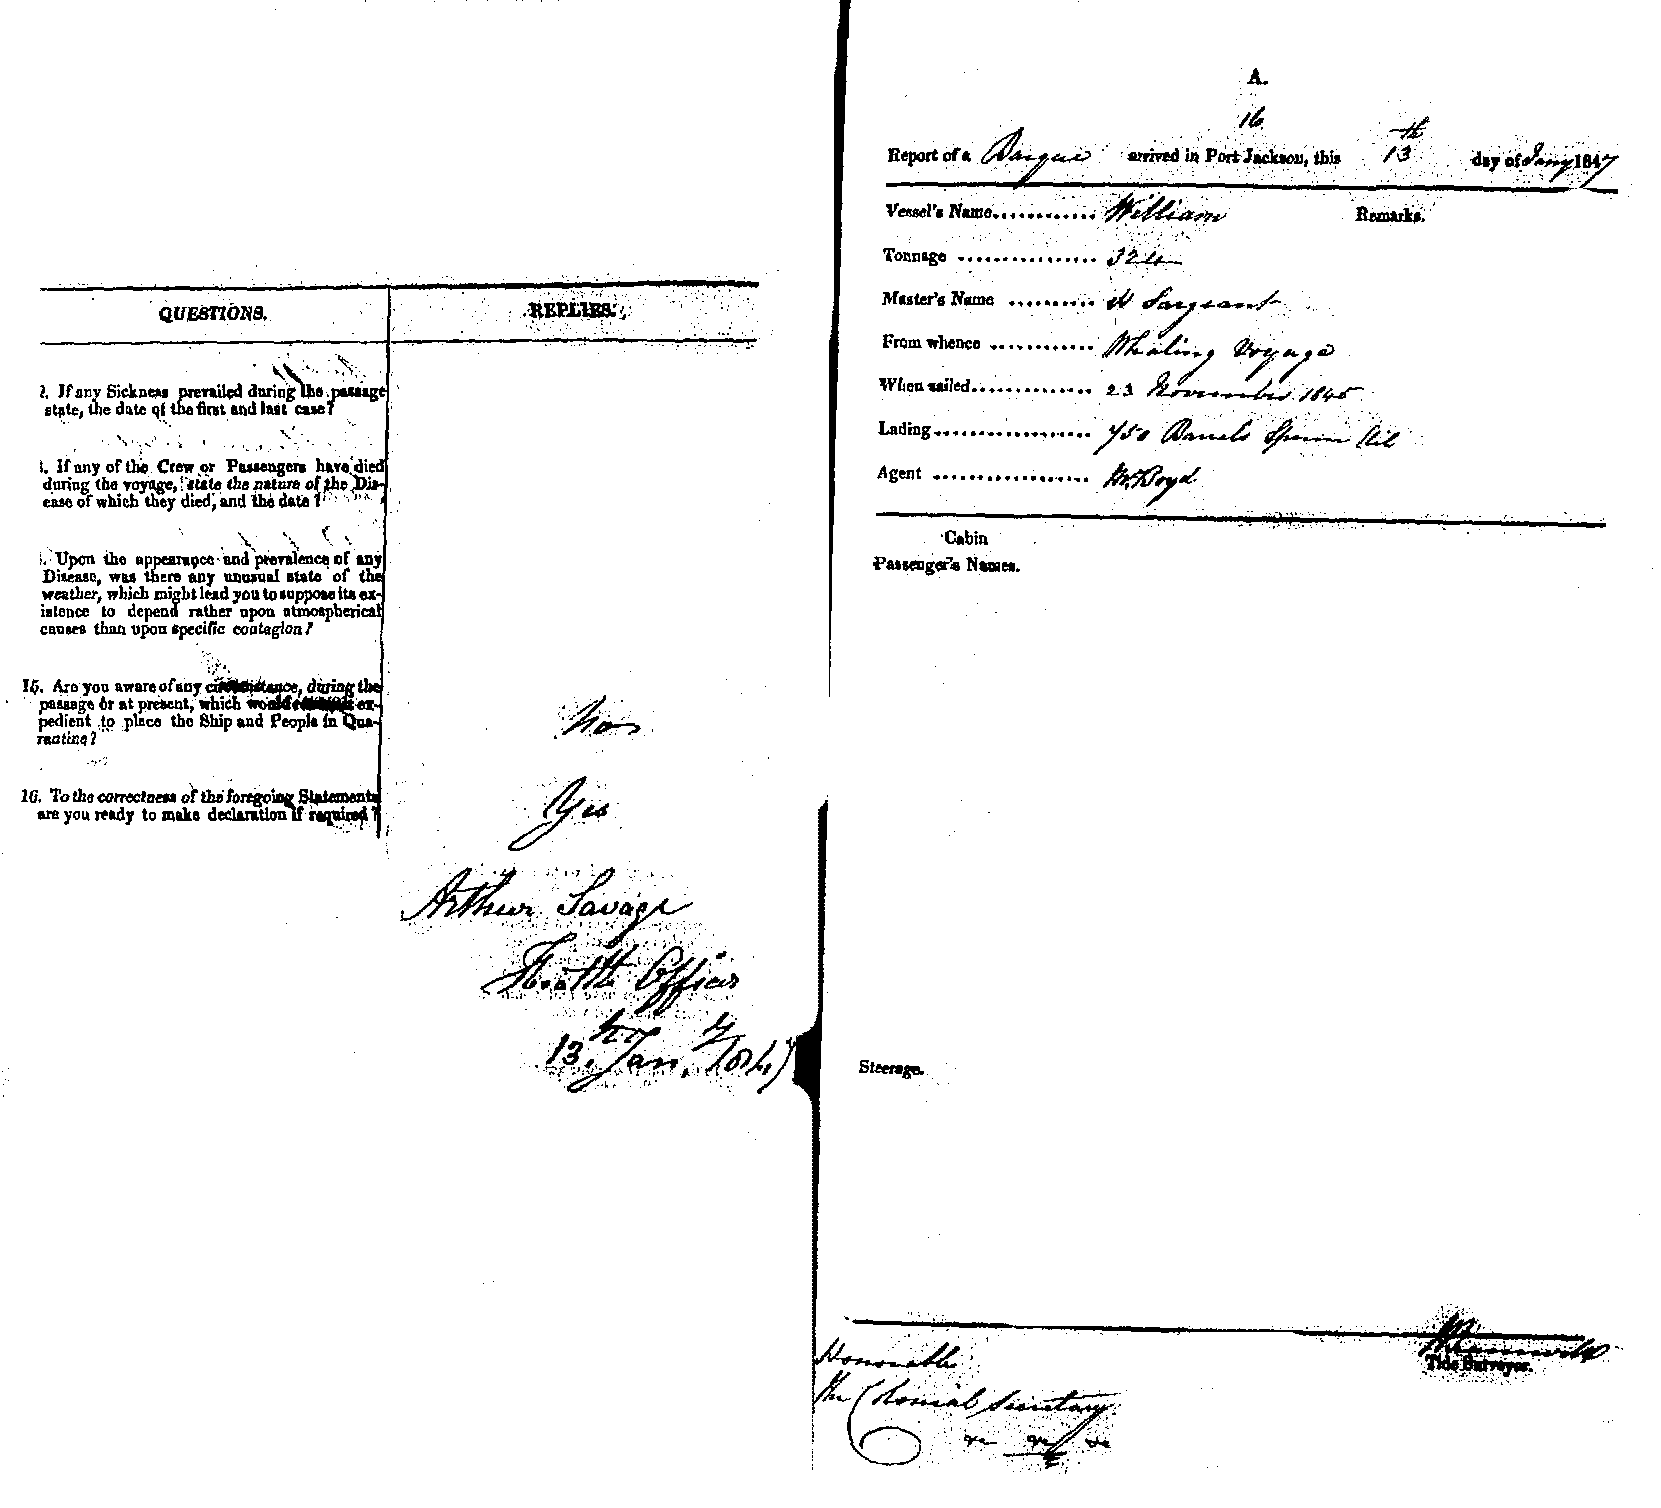 QUESTIONS.
REPLIES.
2. If any Sickness prevailed during the passage
state, the date of the first and last case?
. If any of the Crew or Passengers have died
during the voyage, state the nature of the Dis-
ease of which they died, and the date?
. Upon the appearance and prevalence of any
Disease, was there any unusual state of the
weather, which might lead you to suppose its ex-
istence to depend rather upon atmospherical
causes than upon specific contagion?
15. Are you aware of any circumstance, during the
passage or at present, which would ex-
pedient to place the Ship and People in Qua-
rantine?
No
16. To the correctness of the foregoing Statements
are you ready to make declaration if required?
Yes
Arthur Savage
Health Officer
13th Jany 1847
A.
16
Report of a Barque arrived in Port Jackson, this 13th day of Jany 1847
Vessel's Name............ William
Remarks.
Tonnage ................ 324
Master's Name .......... Sargeant
From whence ............ Whaling Voyage
When sailed.............. 23 November 1845
Lading.................... 750 Barrels Sperm Oil
Agent .................. Mr. Boyd
Cabin
Passenger's Names.
Steerage.
Tide Surveyor.
Honorable
The Colonial Secretary
&c &c &c